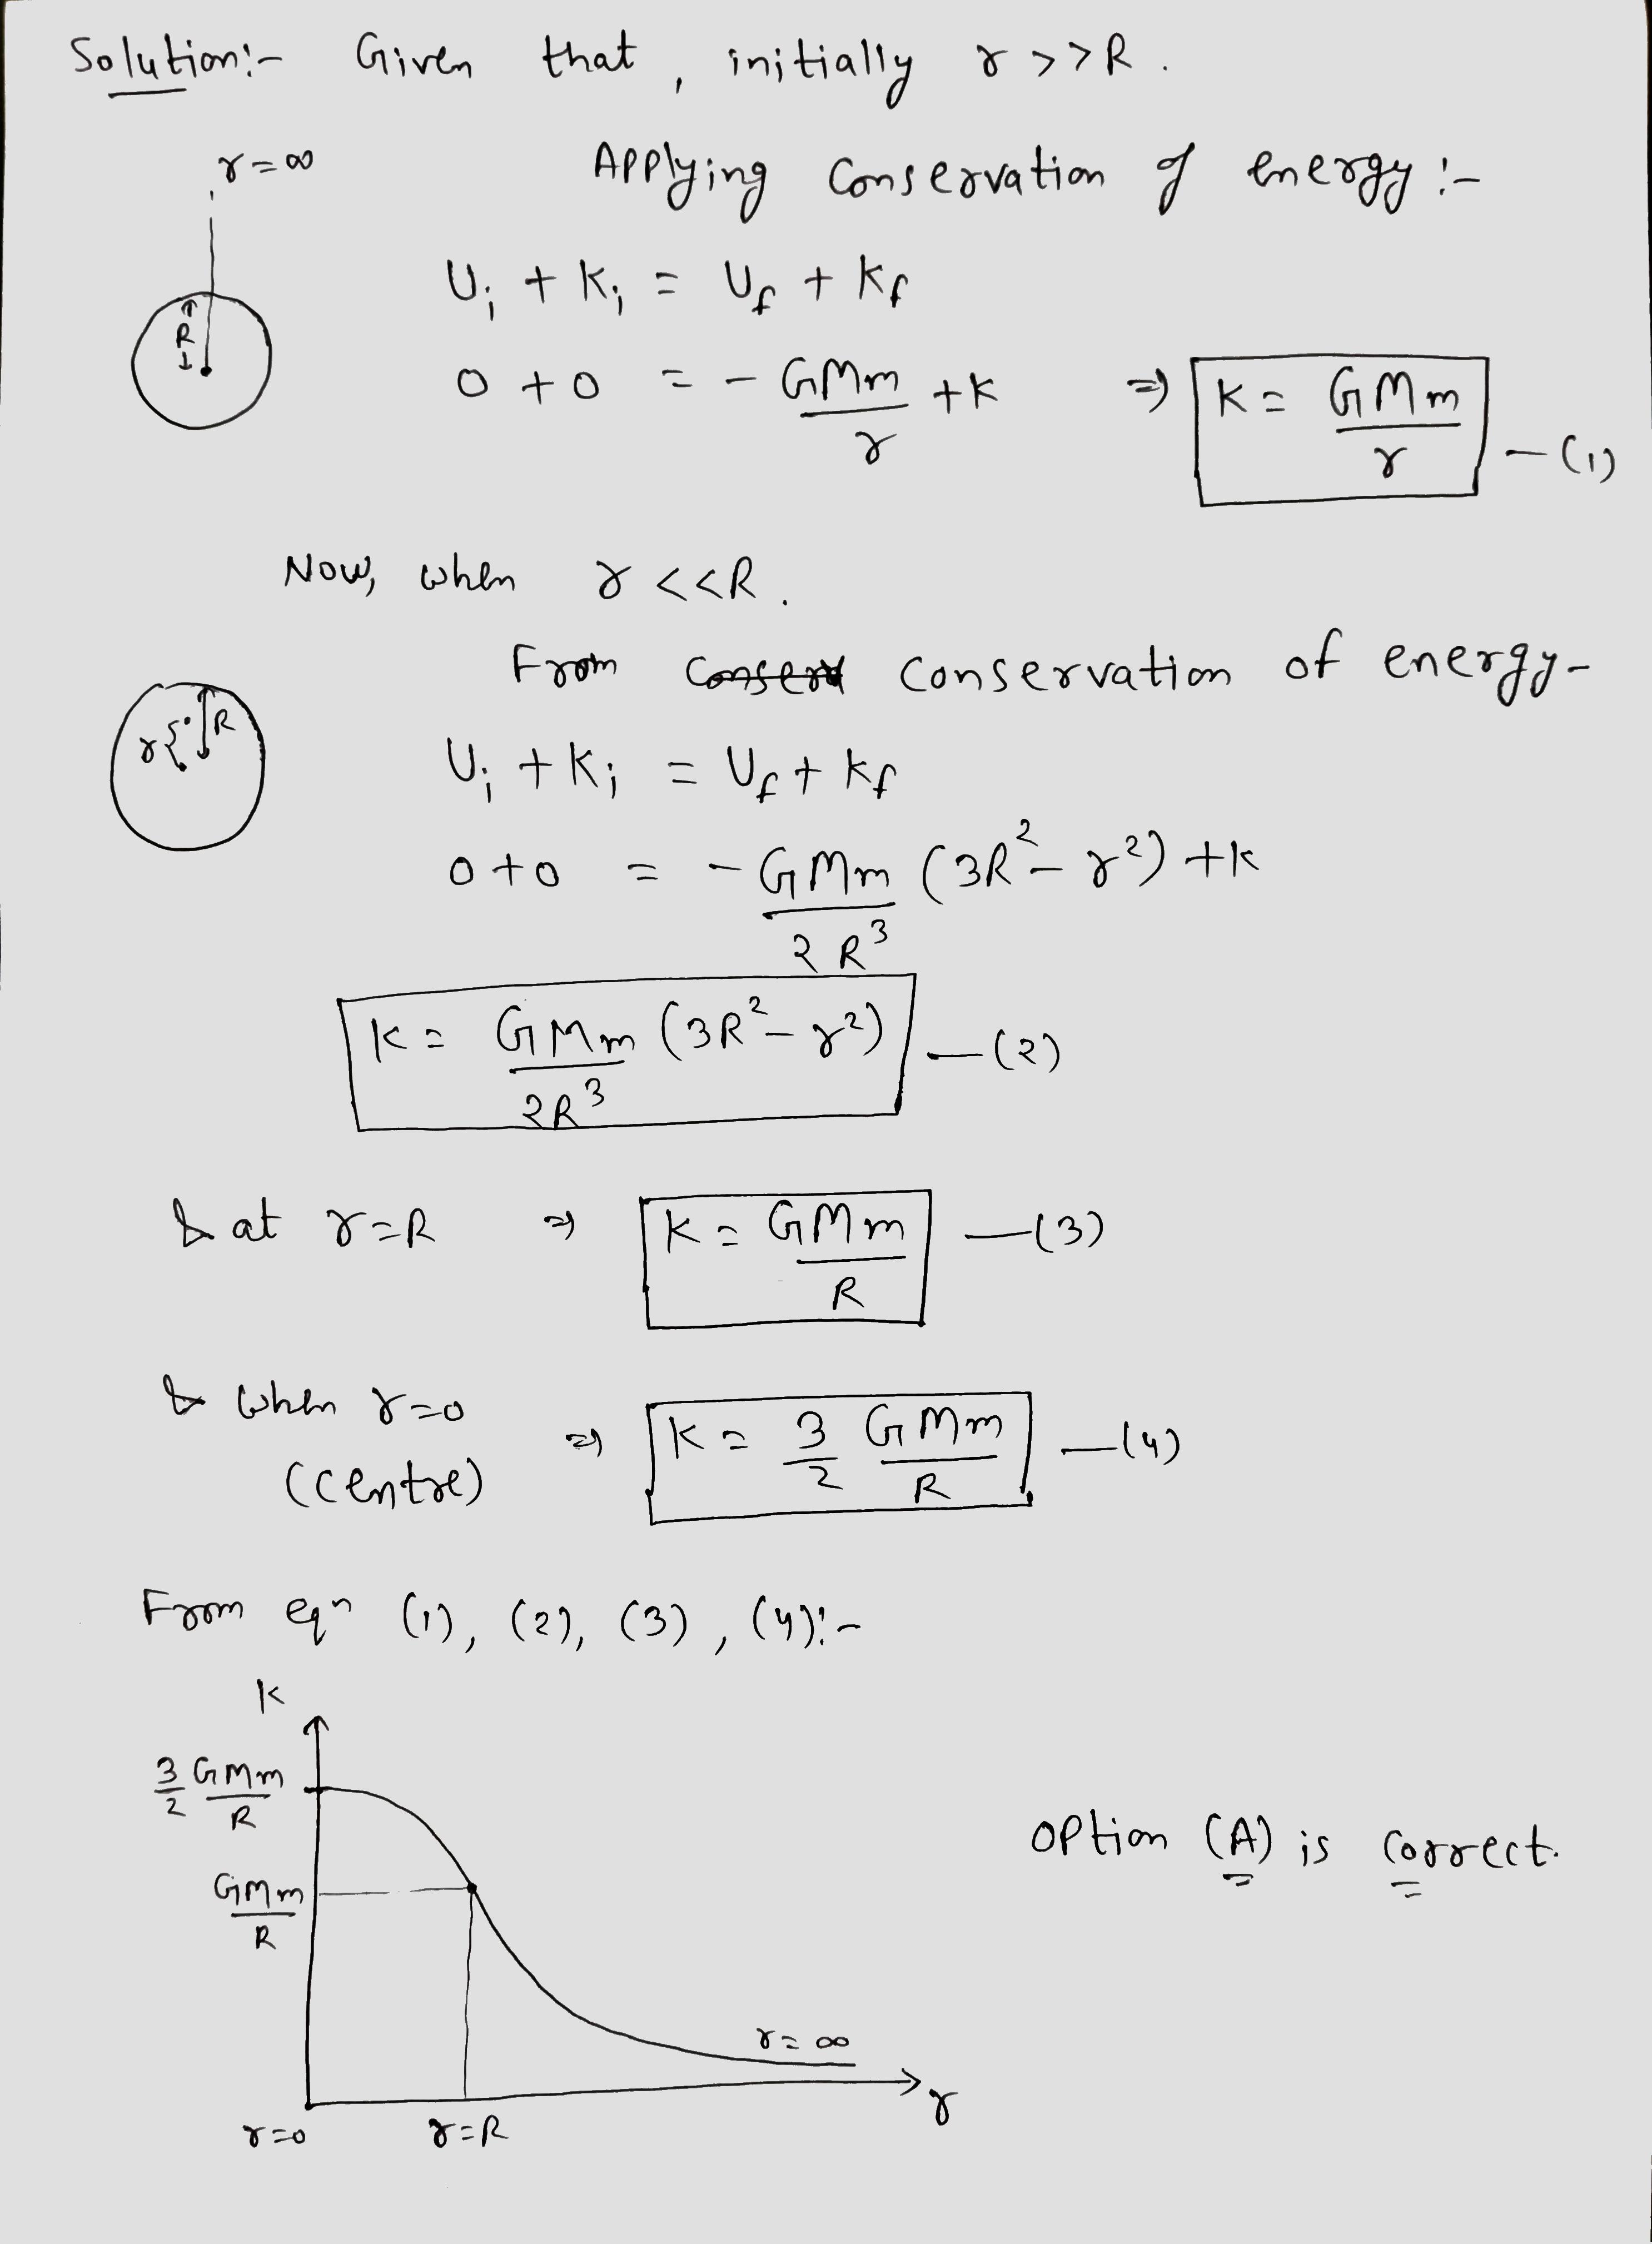 Solution:- Given that, initially r >> R.
r = ∞
Applying Conservation of energy :-
R
Ui + Ki = Uf + Kf
0 + 0 = - GMm/r + K ⇒ K = GMm/r — (1)
Now, when r << R.
From conservation of energy -
r R
Ui + Ki = Uf + Kf
0 + 0 = - GMm/2R³ (3R² - r²) + K
K = GMm/2R³ (3R² - r²) — (2)
& at r = R ⇒ K = GMm/R — (3)
& when r = 0 ⇒ K = 3/2 GMm/R — (4)
(centre)
From eqn (1), (2), (3), (4):-
K
3/2 GMm/R
GMm/R
Option (A) is correct.
r = ∞
r
r = 0 r = R